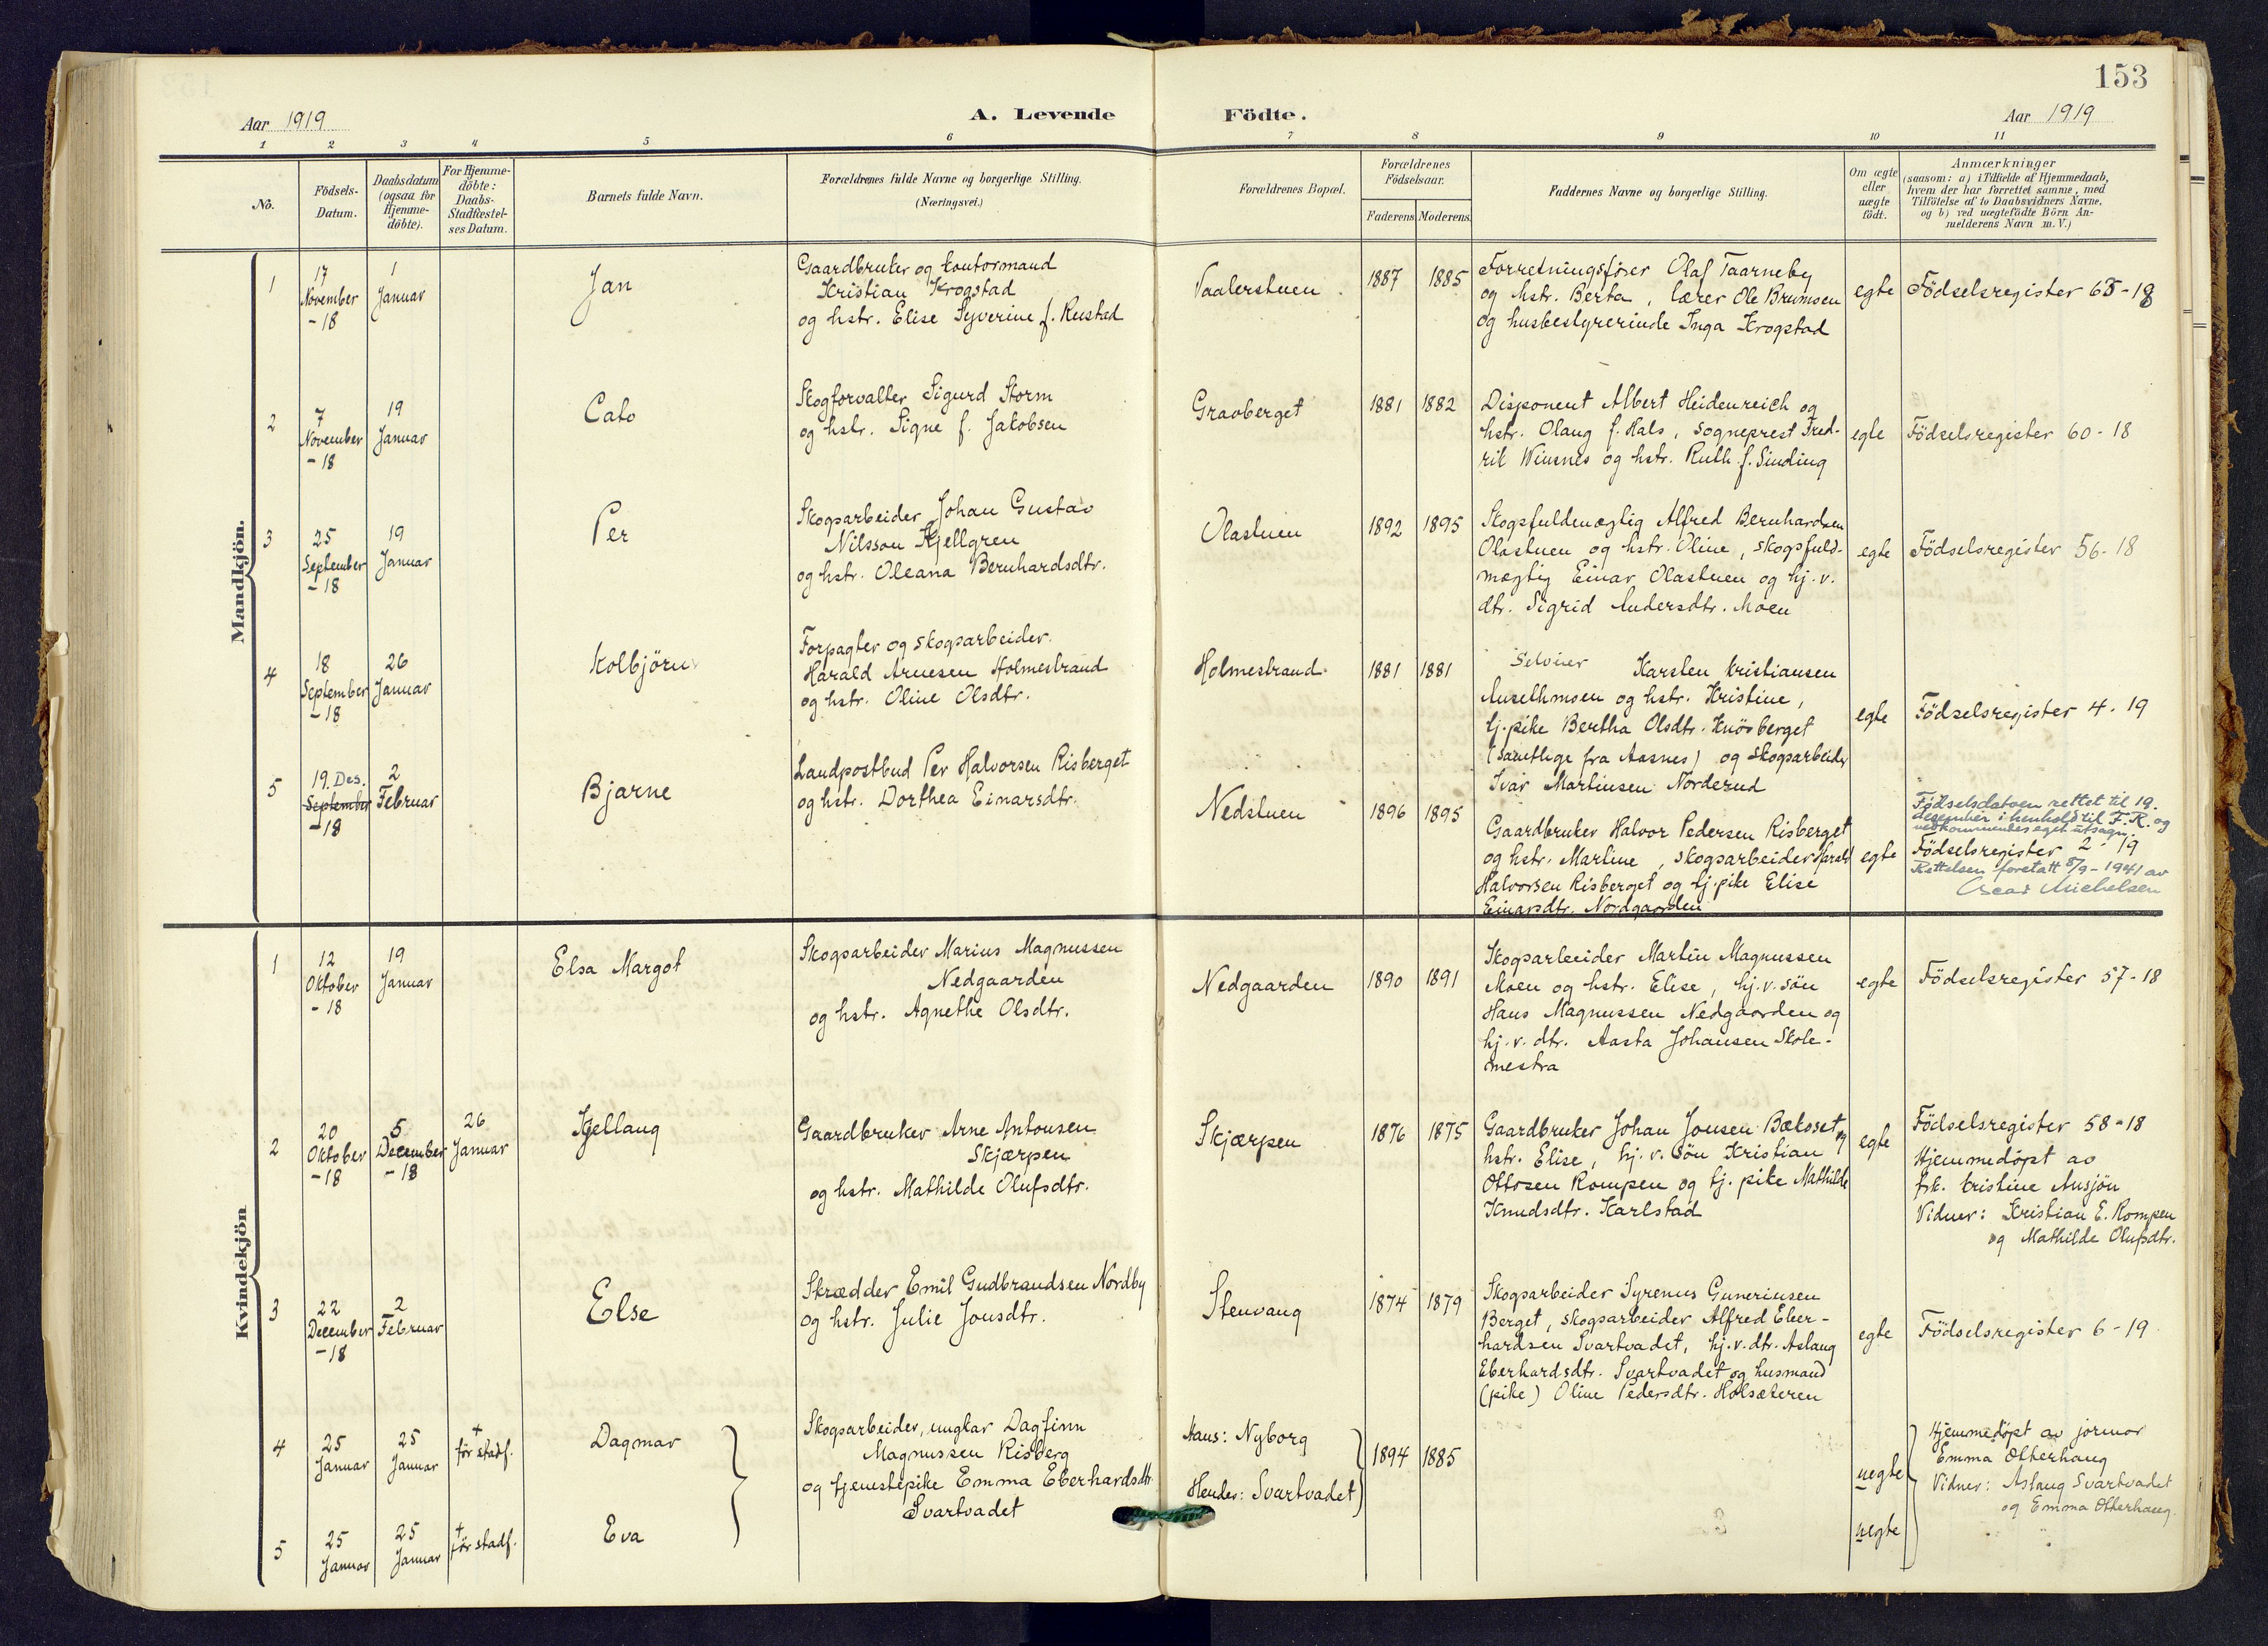 153
Aar 1919
A. Levende Födte.
Aar 1919
1 2 3 4 5 6 7 8 9 10 11
No.
Födsels-
Datum.
Daabsdatum
(ogsaa for
Hjemme-
döbte).
For Hjemme-
döbte:
Daabs-
Stadfæstel-
ses Datum.
Barnets fulde Navn.
Forældrenes fulde Navne og borgerlige Stilling.
(Næringsvei.)
Forældrenes Bopæl.
Forældrenes
Födselsaar.
Faderens Moderens
Faddernes Navne og borgerlige Stilling.
Om ægte
eller
uægte
födt.
Anmærkninger
(saasom: a) i Tilfælde af Hjemmedaab,
hvem der har forrettet samme, med
Tilföielse af to Daabsvidners Navne,
og b) ved uægtefödte Börn An-
melderens Navn m. V.)
Mandkjön.
1
17
November
-18
1
Januar
Jan
Gaardbruker og kontormand
Kristian Krogstad
og hstr. Elise Syverine f. Rustad
Vaalerstuen
1887 1885
Forretningsfører Olaf Taarneby
og hstr. Berta, lærer Ole Brumoen
og husbestyrerinde Inga Krogstad
egte
Födselsregister 65-18
2
7
November
-18
19
Januar
Cato
Skogforvalter Sigurd Storm
og hstr. Signe f. Jakobsen
Gravberget
1881 1882
Disponent Albert Heidenreich og
hstr. Olaug f. Hals, sogneprest Fred-
rik Winsnes og hstr. Ruth f. Sinding
egte
Födselsregister 60-18
3
25
September
-18
19
Januar
Per
Skogsarbeider Johan Gustav
Nilsson Kjellgren
og hstr. Oleana Bernhardsdtr.
Olastuen
1892 1895
Skogsfuldmægtig Alfred Bernhardsen
Olastuen og hstr. Oline, skogsfuld-
mægtig Einar Olastuen og hj.v.
dtr. Sigrid Andersdtr. Moen
egte
Födselsregister 56-18
4
18
September
-18
26
Januar
Kolbjörn
Forpagter og skogsarbeider
Harald Arnesen Holmestrand
og hstr. Oline Olsdtr.
Holmestrand
1881 1881
Selveier Karsten Kristiansen
Anselhmoen og hstr. Kristine,
tj.pike Bertha Olsdtr. Knösberget
(samtlige fra Aasnes) og skogsarbeider
Ivar Martinsen Norderud
egte
Födselsregister 4-19
5
19. Des.
September
-18
2
Februar
Bjarne
Landpostbud Per Halvorsen Risberget
og hstr. Dorthea Einarsdtr.
Nedstuen
1896 1895
Gaardbruker Halvor Pedersen Risberget
og hstr. Martine, skogsarbeider Harald
Halvorsen Risberget og tj.pike Elise
Einarsdtr. Nordgaarden
egte
Födselsdatoen rettet til 19.
desember i henhold til F.R. og
vedkommendes eget utsagn.
Födselsregister 2-19
Rettelsen foretatt 8/9-1941 av
Oscar Michelsen
Kvindekjön
1
12
Oktober
-18
19
Januar
Elsa Margot
Skogsarbeider Marius Magnussen
Nedgaarden
og hstr. Agnethe Olsdtr.
Nedgaarden
1890 1891
Skogsarbeider Martin Magnussen
Moen og hstr. Elise, hj.v.sön
Hans Magnussen Nedgaarden og
hj.v.dtr. Aasta Johansen Skole-
mestra
egte
Födselsregister 57-18
2
20
Oktober
-18
5
December
-18
26
Januar
Kjellaug
Gaardbruker Arne Antonsen
Skjærpen
og hstr. Mathilde Olufsdtr.
Skjærpen
1876 1875
Gaardbruker Johan Jonsen Bækoset og
hstr. Elise, hj.v. sön Kristian
Ottosen Rompen og tj. pike Mathilde
Knudsdtr. Karlstad
egte
Födselsregister 58-18
Hjemmedöpt av
frk. Kristine Ausjön
Vidner: Kristian E. Rompen
og Mathilde Olufsdtr.
3
22
December
-18
2
Februar
Else
Skrædder Emil Gudbrandsen Nordby
og hstr. Julie Jonsdtr.
Stenvang
1874 1879
Skogsarbeider Syrenus Guneriusen
Berget, skogsarbeider Alfred Eber-
hardsen Svartvadet, hj.v.dtr. Aslaug
Eberhardsdtr. Svartvadet og husmand
(pike) Oline Pedersdtr. Holsæteren
egte
Födselsregister 6-19
4
25
Januar
25
Januar
+
før stadf.
Dagmar
Skogsarbeider, ungkar Dagfinn
Magnussen Risberg
og tjenestepike Emma Eberhardsdtr.
Svartvadet
Hans: Nyborg
Hendes: Svartvadet
1894 1885
uegte
Hjemmedöpt av jormor
Emma Otterhaug
Vidner: Aslaug Svartvadet
og Emma Otterhaug.
5
25
Januar
25
Januar
+
før stadf.
Eva
uegte